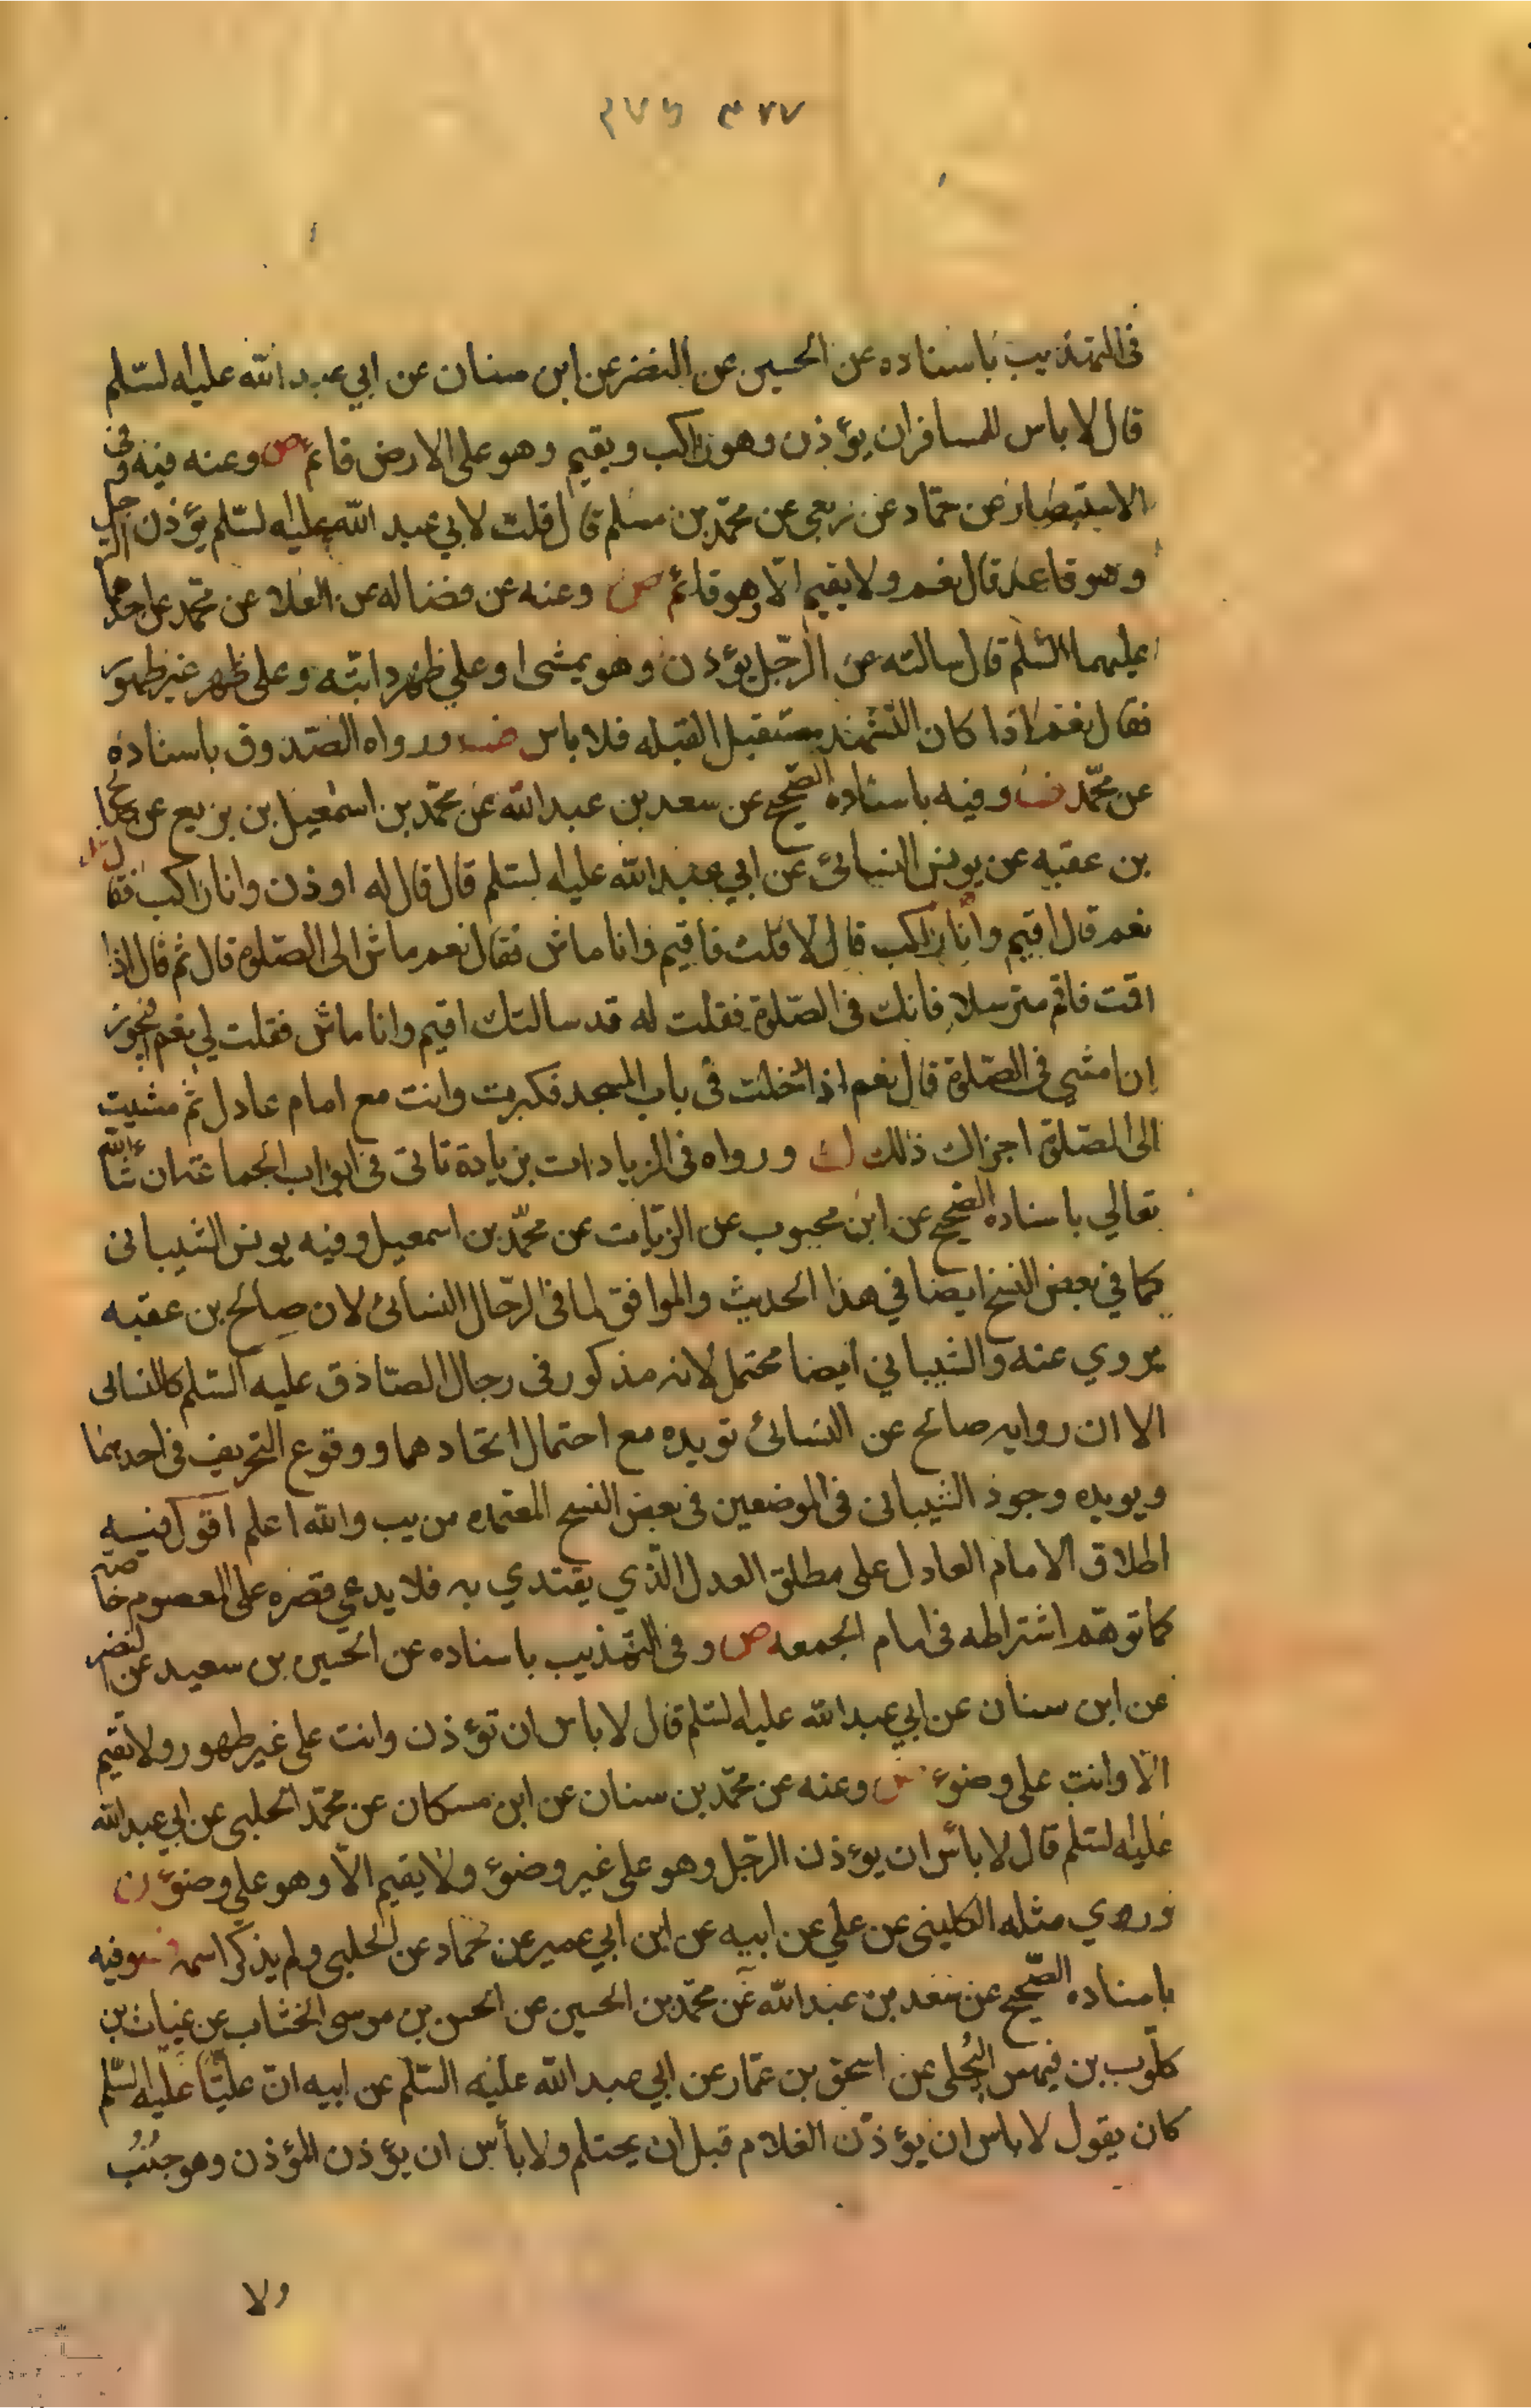 ٣٧٧ ٣٧٦
في التهذيب باسناده عن الحسين عن النضر عن ابن سنان عن ابي عبد الله عليه السلم
قال لا باس للمسافر ان يؤذن وهو راكب ويقيم وهو على الارض قائم ص وعنه فيه وفي
الاستبصار عن حماد عن ربعي عن محمد بن مسلم قال قلت لابي عبد الله عليه السلم يؤذن الرجل
وهو قاعد قال نعم ولا يقيم الا وهو قائم ص وعنه عن فضاله عن العلا عن محمد عن احدهما
عليهما السلم قال سالته عن الرجل يؤذن وهو يمشى او على ظهر دابته وعلى ظهر غير طهور
فقال نعم اذا كان التشهد مستقبل القبله فلا باس ورواه الصدوق باسناده
عن محمد وفيه باسناده الصحيح عن سعد بن عبد الله عن محمد بن اسمعيل بن بزيع عن صالح
بن عقبه عن يونس النسائى عن ابي عبد الله عليه السلم قال قال له اوذن وانا راكب فقال
نعم قال اقيم وانا راكب قال لا قلت فاقيم وانا ماش فقال نعم ماش الى الصلوة قال ثم قال اذا
اقمت فاقم مترسلا فانك في الصلوة فقلت له قد سالتك اقيم وانا ماش فقلت لي نعم فيجوز
ان امشي في الصلوة قال نعم اذا دخلت في باب المسجد فكبرت وانت مع امام عادل ثم مشيت
الى الصلوة اجزاك ذلك ورواه في الزيادات بزيادة تاتى في ابواب الجماعة ان شاء الله
تعالي باسناده الصحيح عن ابن محبوب عن الزيات عن محمد بن اسمعيل وفيه يونس الشيبانى
كما في بعض النسخ ايضا في هذا الحديث والموافق لما في الرجال النسائى لان صالح بن عقبه
يروي عنه والشيباني ايضا محتمل لانه مذكور في رجال الصادق عليه السلم كالنسائى
الا ان روايه صالح عن النسائى تويده مع احتمال اتحادهما ووقوع التحريف في احدهما
ويويده وجود الشيبانى في الموضعين في بعض النسخ المعتمده من يب والله اعلم اقول فيه
اطلاق الامام العادل على مطلق العدل الذي يقتدي به فلا يدعي قصره على المعصوم خاصه
كما توهم اشتراطه في امام الجمعه ص وفي التهذيب باسناده عن الحسين بن سعيد عن النضر
عن ابن سنان عن ابي عبد الله عليه السلم قال لا باس ان تؤذن وانت على غير طهور ولا تقيم
الا وانت على وضوء وعنه عن محمد بن سنان عن ابن مسكان عن محمد الحلبى عن ابي عبد الله
عليه السلم قال لا بأس ان يؤذن الرجل وهو على غير وضوء ولا يقيم الا وهو على وضوء ن
وروي مثله الكلينى عن علي عن ابيه عن ابن ابي عمير عن حماد عن الحلبى ولم يذكر اسمه وفيه
باسناده الصحيح عن سعد بن عبد الله عن محمد بن الحسين عن الحسن بن موسى الخشاب عن غياث بن
كلوب بن فيهس البجلى عن اسحق بن عمار عن ابي عبد الله عليه السلم عن ابيه ان عليا عليه السلم
كان يقول لا باس ان يؤذن الغلام قبل ان يحتلم ولا بأس ان يؤذن المؤذن وهو جنب
ولا